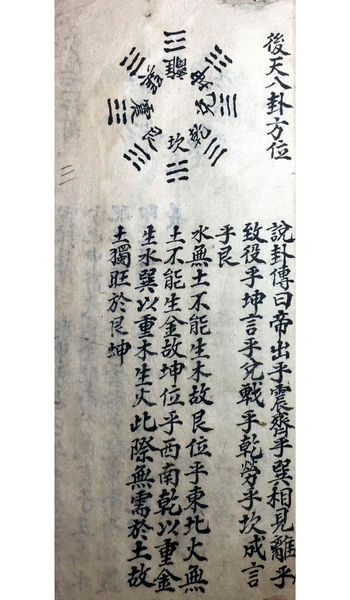 後天八卦方位
離
坤
兌
乾
坎
艮
震
巽
說卦傳曰帝出乎震齊乎巽相見離乎
致役乎坤言乎兌戰乎乾勞乎坎成言
乎艮
水無土不能生木故艮位乎東北火無
土不能生金故坤位乎西南乾以重金
生水巽以重木生火此際無需於土故
土獨旺於艮坤